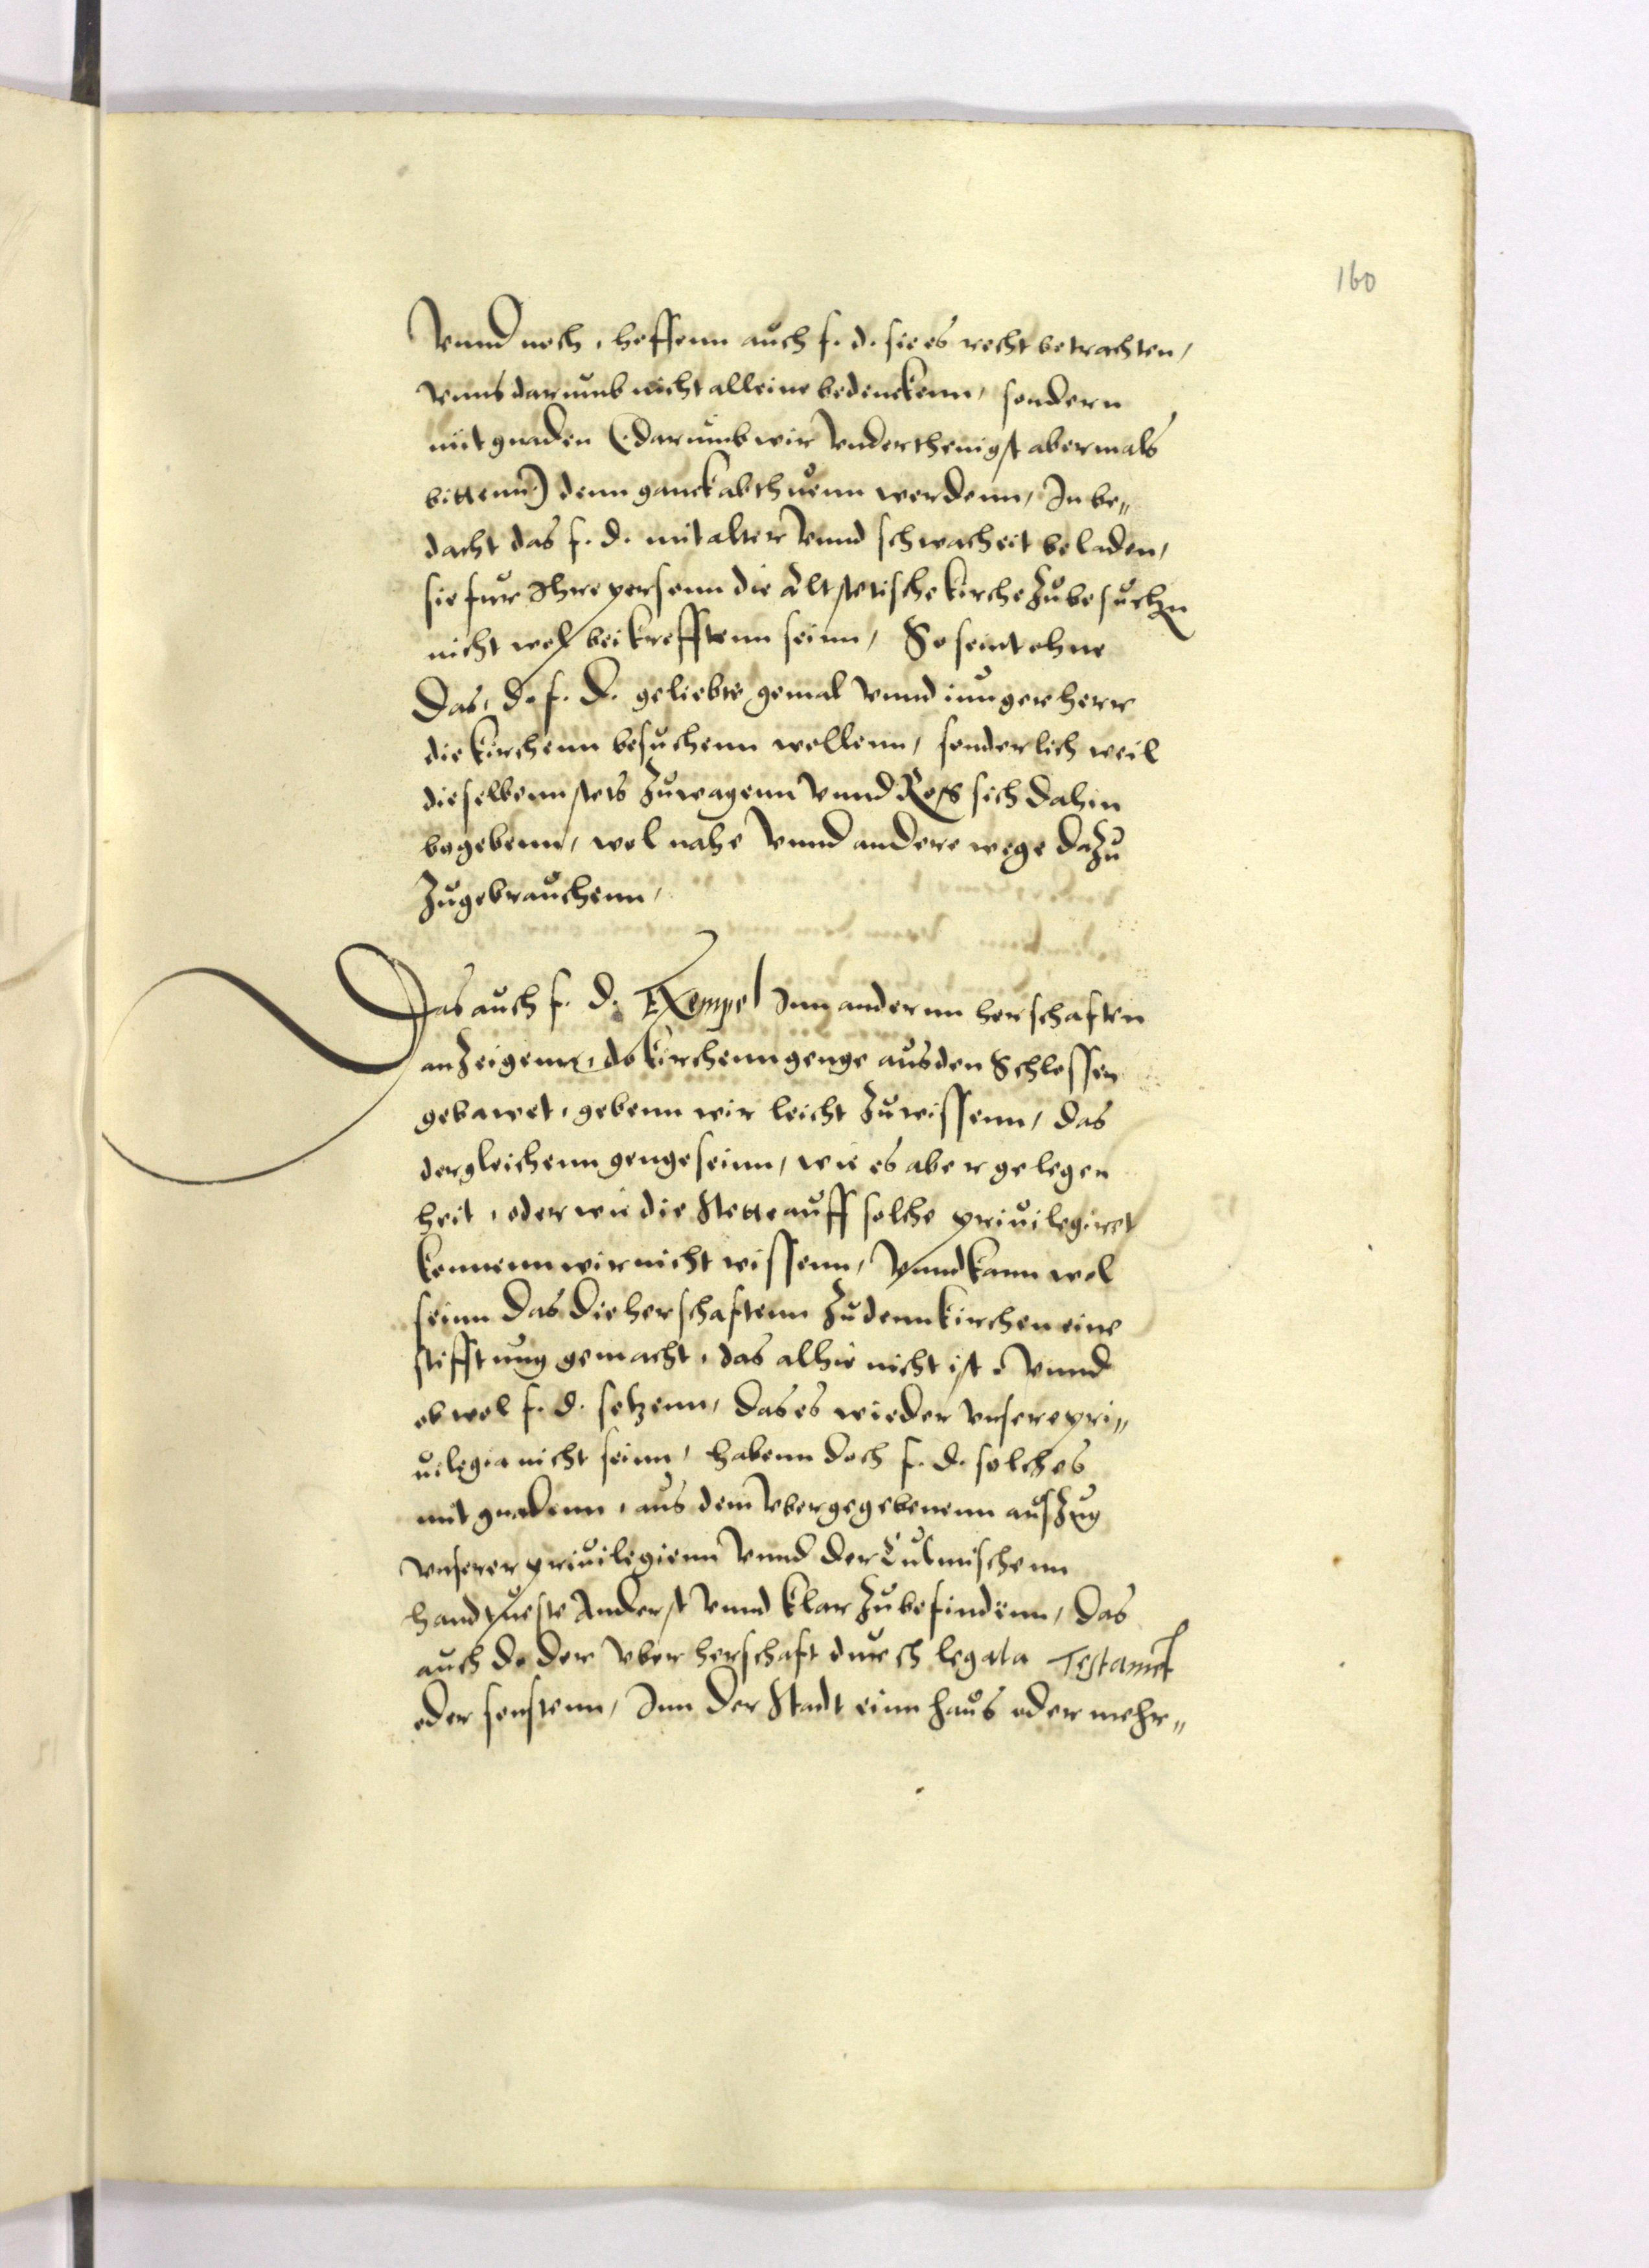 160
Vnnd noch, hoffenn auch f. d. sie es recht betrachten,
vnns darumb nicht alleine bedenckenn, sondern
mit gnaden (darumb wir vnderthenigst abermals
bittenn) denn ganck abthuenn werdenn, In be„
dacht das f. d. mit alter vnnd schwacheit beladen,
sie fur Ihre personn die Altstetische kirche zubesuchen
nicht wol bei krefftenn seinn, So seint ohne
Das, do f. d. geliebte gemal vnnd iunger herr
die kirchenn besuchenn wollenn, sonderlich weil
dieselbenn stets zuwagenn vnnd Ross sich dahin
begebenn, wol nahe vnnd andere wege dazu
zugebrauchenn,
Das auch f. d. Exempel Inn andernn herschaften
anzeigenn, do kirchenngenge aus den Schlossen
gebawet, gebenn wir leicht zuwissenn, das
dergleichenn genge seinn, wie es aber gelegen
heit, oder wie die Stette auff solche priuilegiret
konnenn wir nicht wissenn, Vnnd kann wol
seinn Das Die herschaftenn zu denn kirchen eine
stifftung gemacht, das alhie nicht ist, Vnnd
ob wol f. d. setzenn, Das es wieder vnsere pri„
uilegia nicht seinn, habenn doch f. d. solches
mit gnadenn, aus dem vbergegebenenn auszug
vnserer priuilegienn vnnd der Culmischenn
handtueste Anderst vnnd klar zubefindenn, Das
auch do der vberherschaft durch legata Testament
oder sonstenn, Inn der Stadt einn haus oder mehr„